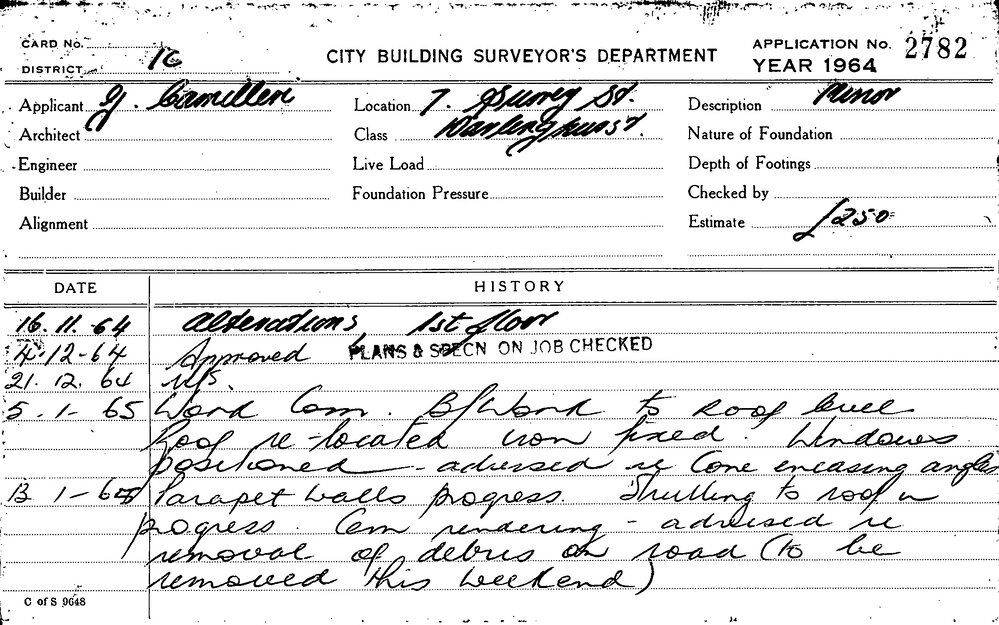 CARD No.
DISTRICT 16
CITY BUILDING SURVEYOR'S DEPARTMENT
APPLICATION No. 2782
YEAR 1964
Applicant G. Camilleri
Location 7. Surrey St.
Description Minor
Architect
Class Darlinghurst.
Nature of Foundation
Engineer
Live Load
Depth of Footings
Builder
Foundation Pressure
Checked by
Alignment
Estimate £250
DATE HISTORY
16.11.64 Alterations, 1st floor
4.12-64 Approved PLANS & SPECN ON JOB CHECKED
21.12.64 N/S.
5.1-65 Work Com. B/Work to Roof level
Roof re-located iron fixed. Windows
positioned - advised re Conc encasing angles
13 1-65 Parapet walls progress. to roof in
progress. Cem rendering - advised re
removal of debris on road (to be
removed this weekend)
C of S 9648